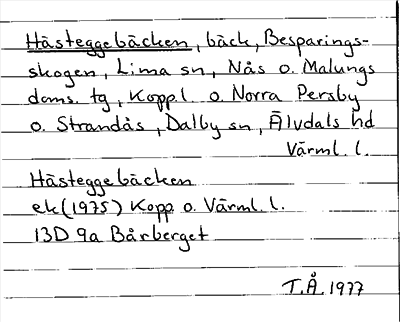 Hästeggebäcken, bäck, Besparings-
skogen, Lima sn, Nås o. Malungs
doms. tg, Kopp.l. o. Norra Persby
o. Strandås, Dalby sn, Älvdals hd
Värml. l.
Hästeggebäcken
ek (1975) Kopp o. Värml. l.
13D 9a Bårberget
T.Å. 1977